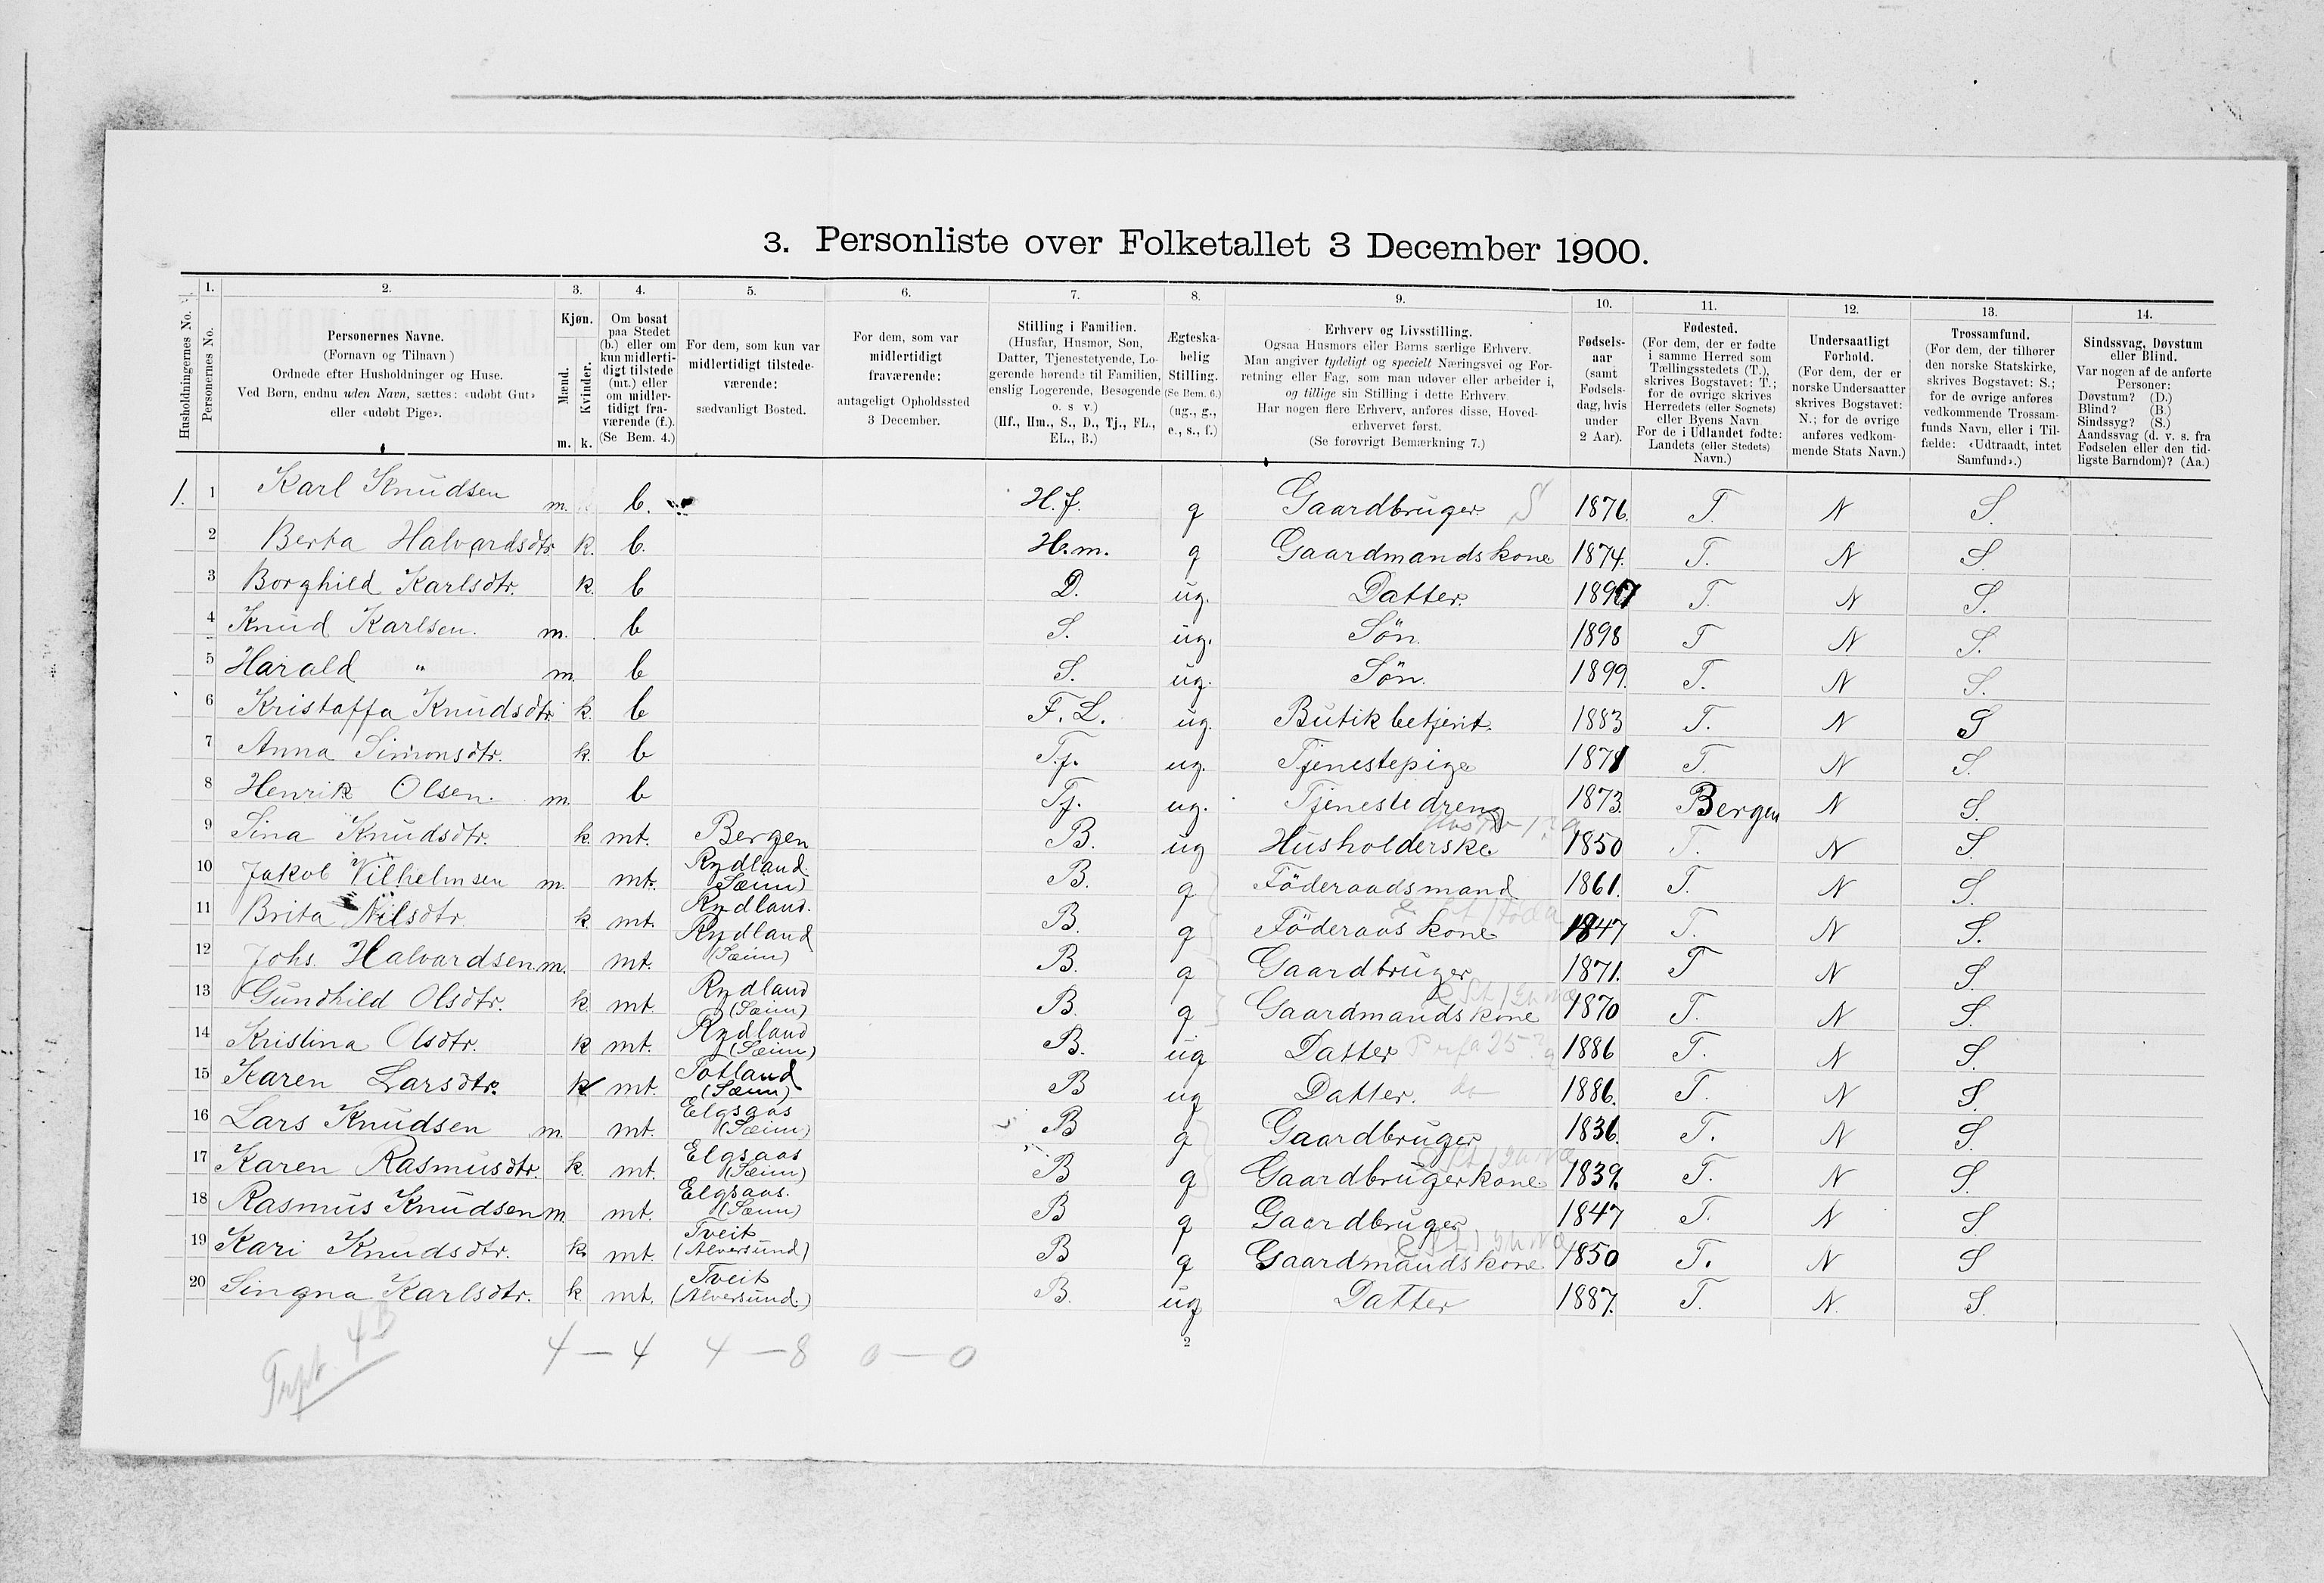 3. Personliste over Folketallet 3 December 1900.
Husholdningernes No.
1. Personernes No.
2. Personernes Navne.
(Fornavn og Tilnavn)
Ordnede efter Husholdninger og Huse.
Ved Børn, endnu uden Navn, sættes: «udøbt Gut»
eller «udøbt Pige».
3. Kjøn.
Mænd. m.
Kvinder. k.
4. Om bosat
paa Stedet
(b.) eller om
kun midlerti-
digt tilstede
(mt.) eller
om midler-
tidigt fra-
værende (f.).
(Se Bem. 4.)
5. For dem, som kun var
midlertidigt tilstede-
værende:
sædvanligt Bosted.
6. For dem, som var
midlertidigt
fraværende:
antageligt Opholdssted
3 December.
7. Stilling i Familien.
(Husfar, Husmor, Søn,
Datter, Tjenestetyende, Lo-
gerende hørende til Familien,
enslig Logerende, Besøgende
o. s v.)
(Hf., Hm., S., D., Tj., FL.,
EL., B.)
8. Ægteska-
belig
Stilling.
(Se Bem. 6.)
(ug., g.,
e., s., f.)
9. Erhverv og Livsstilling.
Ogsaa Husmors eller Børns særlige Erhverv.
Man angiver tydeligt og specielt Næringsvei og For-
retning eller Fag, som man udøver eller arbeider i,
og tillige sin Stilling i dette Erhverv.
Har nogen flere Erhverv, anføres disse, Hoved-
erhvervet først.
(Se forøvrigt Bemærkning 7.)
10. Fødsels-
aar
(samt
Fødsels-
dag, hvis
under
2 Aar).
11. Fødested.
(For dem, der er fødte
i samme Herred som
Tællingsstedets (T.),
skrives Bogstavet: T.;
for de øvrige skrives
Herredets (eller Sognets)
eller Byens Navn
For de i Udlandet fødte:
Landets (eller Stedets)
Navn.)
12. Undersaatligt
Forhold.
(For dem, der er
norske Undersaatter
skrives Bogstavet:
N.; for de øvrige
anføres vedkom-
mende Stats Navn.)
13. Trossamfund.
(For dem, der tilhører
den norske Statskirke,
skrives Bogstavet: S.;
for de øvrige anføres
vedkommende Trossam-
funds Navn, eller i Til-
fælde: «Udtraadt, intet
Samfund».)
14. Sindssvag, Døvstum
eller Blind.
Var nogen af de anførte
Personer:
Døvstum? (D.)
Blind? (B.)
Sindssyg? (S.)
Aandssvag (d. v. s. fra
Fødselen eller den tid-
ligste Barndom)? (Aa.)
1. 1 Karl Knudsen m. b. H.f. g Gaardbruger S 1876. T. N S.
2 Berta Halvardsdtr k. b. H.m. g Gaardmandskone 1874. T. N S.
3 Borghild Karlsdtr. k. b D. ug. Datter. 1897 T. N S.
4 Knud Karlsen. m. b S. ug. Sön. 1898 T N S.
5 Harald " m. b S. ug. Sön. 1899. T. N S.
6 Kristoffa Knudsdtr k. b F. L. ug. Butikbetjent. 1883 T. N S
7 Anna Simonsdtr. k. b T.j. ug. Tjenestepige 1871 T. N S.
8 Henrik Olsen. m. b Tj. ug. Tjenestedreng 1873. Bergen N S.
9 Sina Knudsdtr. k. mt. Bergen B. ug Husholderske 1850 T. N S.
10 Jakob Vilhelmsen m. mt. Rydland (Sæim) B. g Föderaadsmand 1861. T. N S.
11 Brita Nilsdtr. k mt. Rydland. B. g Föderaads kone 1847 T. N S.
12 Johs. Halvardsen. m. mt. Rydland (Sæim) B. g Gaardbruger 1871. T N S.
13 Gundhild Olsdtr. k. mt. Rydland (Sæim) B. g Gaardmandskone 1870 T. N S.
14 Kristina Olsdtr. k mt. Rydland (Sæim) B. ug Datter 1886 T. N S.
15 Karen Larsdtr. k mt. Totland (Sæim) B ug Datter. do 1886. T. N S.
16 Lars Knudsen m. mt. Elgsaas (Sæim) B g Gaardbruger 1836. T. N S.
17 Karen Rasmusdtr. k. mt. Elgsaas (Sæim) B g Gaardbrugerkone 1839. T. N S.
18 Rasmus Knudsen m. mt. Elgsaas. (Sæim) B g Gaardbruger 1847 T. N S
19 Kari Knudsdtr. k. mt. Tveit (Alversund) B g Gaardmandskone 1850 T. N S
20 Singna Karlsdtr. k mt. Tveit (Alversund.) B. ug Datter 1887. T. N. S.
4 — 4 4 — 8 0 — 0
2